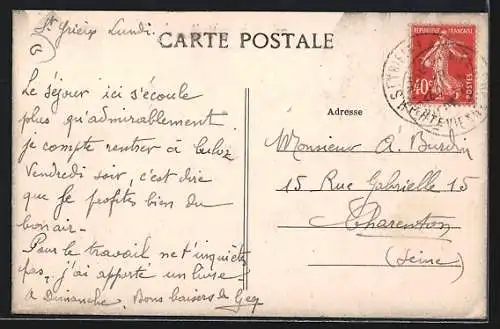 St Yrieix Lundi.
CARTE POSTALE
REPUBLIQUE FRANÇAISE
40c
POSTES
Le séjour ici s'écoule
plus qu'admirablement
je compte rentrer à
Vendredi soir, c'est dire
que je profites bien du
bon air -
Pour le travail ne t'inquiète
pas, j'ai apporté un livre -
A Dimanche, Bons baisers de Geg
Adresse
Monsieur A. Burdin
15 Rue Gabrielle 15
Charenton
(Seine)